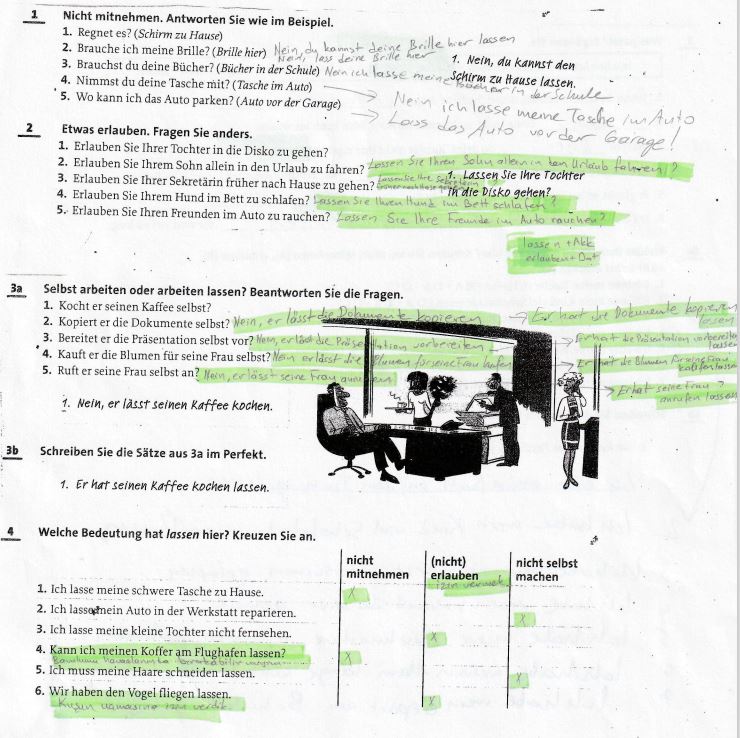 1 Nicht mitnehmen. Antworten Sie wie im Beispiel.
1. Regnet es? (Schirm zu Hause)
2. Brauche ich meine Brille? (Brille hier) Nein, du kannst deine Brille hier lassen
Nein, lass deine Brille hier
1. Nein, du kannst den
Schirm zu Hause lassen.
3. Brauchst du deine Bücher? (Bücher in der Schule) Nein ich lasse meine Bücher in der Schule
4. Nimmst du deine Tasche mit? (Tasche im Auto) Nein ich lasse meine Tasche im Auto
5. Wo kann ich das Auto parken? (Auto vor der Garage) Lass das Auto vor der Garage!
2 Etwas erlauben. Fragen Sie anders.
1. Erlauben Sie Ihrer Tochter in die Disko zu gehen?
2. Erlauben Sie Ihrem Sohn allein in den Urlaub zu fahren? Lassen Sie Ihren Sohn allein in den Urlaub fahren?
1. Lassen Sie Ihre Tochter
in die Disko gehen?
3. Erlauben Sie Ihrer Sekretärin früher nach Hause zu gehen? Lassen Sie Ihre Sekretärin
4. Erlauben Sie Ihrem Hund im Bett zu schlafen? Lassen Sie Ihren Hund im Bett schlafen?
5. Erlauben Sie Ihren Freunden im Auto zu rauchen? Lassen Sie Ihre Freunde im Auto rauchen?
lassen + Akk
erlauben + Dat
3a Selbst arbeiten oder arbeiten lassen? Beantworten Sie die Fragen.
1. Kocht er seinen Kaffee selbst?
2. Kopiert er die Dokumente selbst? Nein, er lässt die Dokumente kopieren → Er hat die Dokumente kopieren
lassen
3. Bereitet er die Präsentation selbst vor? Nein, er lässt die Präsentation vorbereiten → Er hat die Präsentation vorbereiten
lassen
4. Kauft er die Blumen für seine Frau selbst? Nein er lässt die Blumen für seine Frau kaufen → Er hat die Blumen für seine Frau
kaufen lassen
5. Ruft er seine Frau selbst an? Nein, er lässt seine Frau anrufen → Er hat seine Frau
anrufen lassen
1. Nein, er lässt seinen Kaffee kochen.
3b Schreiben Sie die Sätze aus 3a im Perfekt.
1. Er hat seinen Kaffee kochen lassen.
4 Welche Bedeutung hat lassen hier? Kreuzen Sie an.
nicht mitnehmen (nicht) erlauben nicht selbst machen
izin vermek
1. Ich lasse meine schwere Tasche zu Hause. X
2. Ich lasse mein Auto in der Werkstatt reparieren. X
3. Ich lasse meine kleine Tochter nicht fernsehen. X
4. Kann ich meinen Koffer am Flughafen lassen? X
5. Ich muss meine Haare schneiden lassen. X
6. Wir haben den Vogel fliegen lassen. X
Kuşun uçmasına izin verdik.